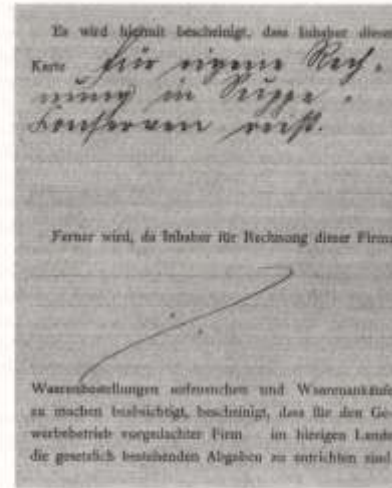 Es wird hiermit bescheinigt, dass Inhaber dieser
Karte für eigene Rech-
nung in Suppe-
Konserven reist.
Ferner wird, da Inhaber für Rechnung dieser Firma
Waarenbestellungen aufzusuchen und Waarenankäufe
zu machen beabsichtigt, bescheinigt, dass für den Ge-
werbebetrieb vorgedachter Firm im hiesigen Lande
die gesetzlich bestehenden Abgaben zu entrichten sind.